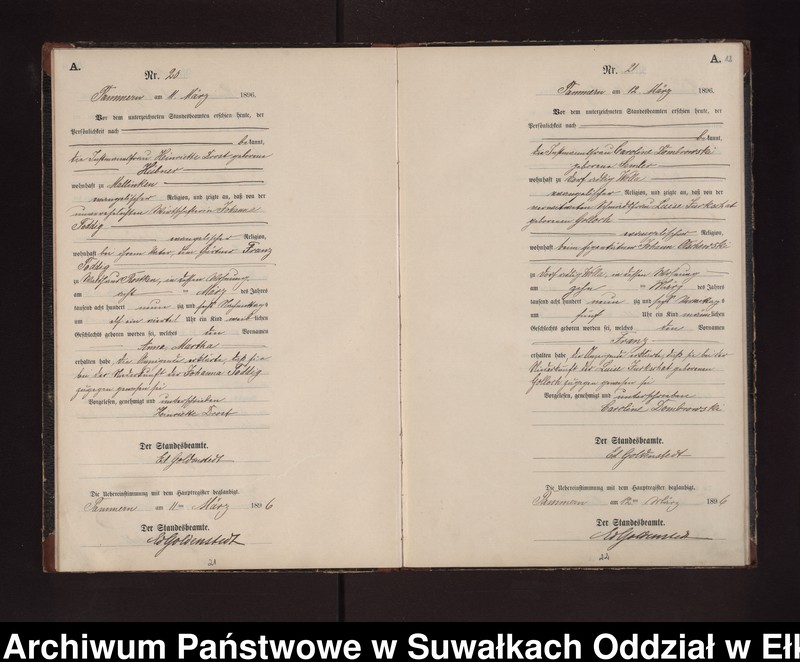 A.
Nr. 20
Tammern am 11 März 1896.
Vor dem unterzeichneten Standesbeamten erschien heute, der
Persönlichkeit nach
bekannt,
die Instmannsfrau Henriette Dorst geborene
Hübner
wohnhaft zu
evangelischer Religion, und zeigte an, daß von der
unverehelichten Johanna
evangelischer Religion,
wohnhaft bei ihrem Vater, dem Gärtner Franz
zu in dessen Wohnung
am März des Jahres
tausend acht hundert neun zig und sechs Vormittags
um elf ein viertel Uhr ein Kind weiblichen
Geschlechts geboren worden sei, welches den Vornamen
Anna Martha
erhalten habe. Die Anzeigende erklärte, daß sie
bei der Niederkunft der Johanna
zugegen gewesen sei
Vorgelesen, genehmigt und unterschrieben
Henriette Dorst
Der Standesbeamte.
Ed Goldenstedt
Die Uebereinstimmung mit dem Hauptregister beglaubigt.
Tammern am 11ten März 1896
Der Standesbeamte.
Ed Goldenstedt
21
A.
Nr. 21
Tammern am 12. März 1896.
Vor dem unterzeichneten Standesbeamten erschien heute, der
Persönlichkeit nach
bekannt,
die Instmannsfrau Caroline Dombrowski
geborene
wohnhaft zu Dorf adlig
evangelischer Religion, und zeigte an, daß von der
Luise Jurkschat
geborenen Golloch
evangelischer Religion,
wohnhaft beim Eigenkäthner Johann
zu Dorf adlig in dessen Wohnung
am zehn ten März des Jahres
tausend acht hundert neun zig und sechs Vormittags
um fünf Uhr ein Kind männlichen
Geschlechts geboren worden sei, welches den Vornamen
Franz
erhalten habe. Die Anzeigende erklärte, daß sie bei der
Niederkunft der Luise Jurkschat geborenen
Golloch zugegen gewesen sei
Vorgelesen, genehmigt und unterschrieben
Caroline Dombrowski
Der Standesbeamte.
Ed Goldenstedt
Die Uebereinstimmung mit dem Hauptregister beglaubigt.
Tammern am 12ten März 1896
Der Standesbeamte.
Ed Goldenstedt
22
Archiwum Państwowe w Suwałkach Oddział w Ełk